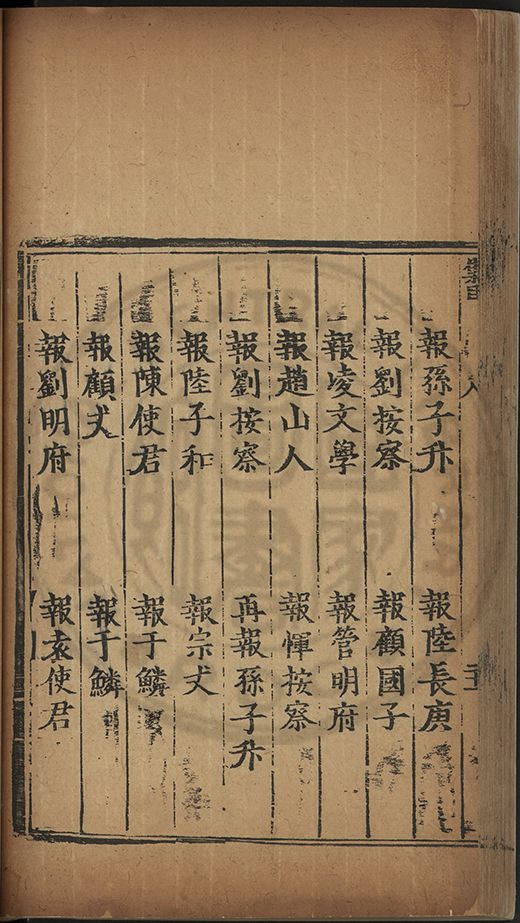 報孫子升 報陸長庚
報劉按察 報顧國子
報凌文學 報管明府
報趙山人 報惲按察
報劉按察 再報孫子升
報陸子和 報宗丈
報陳使君 報于鱗
報顧丈 報于鱗
報劉明府 報袁使君